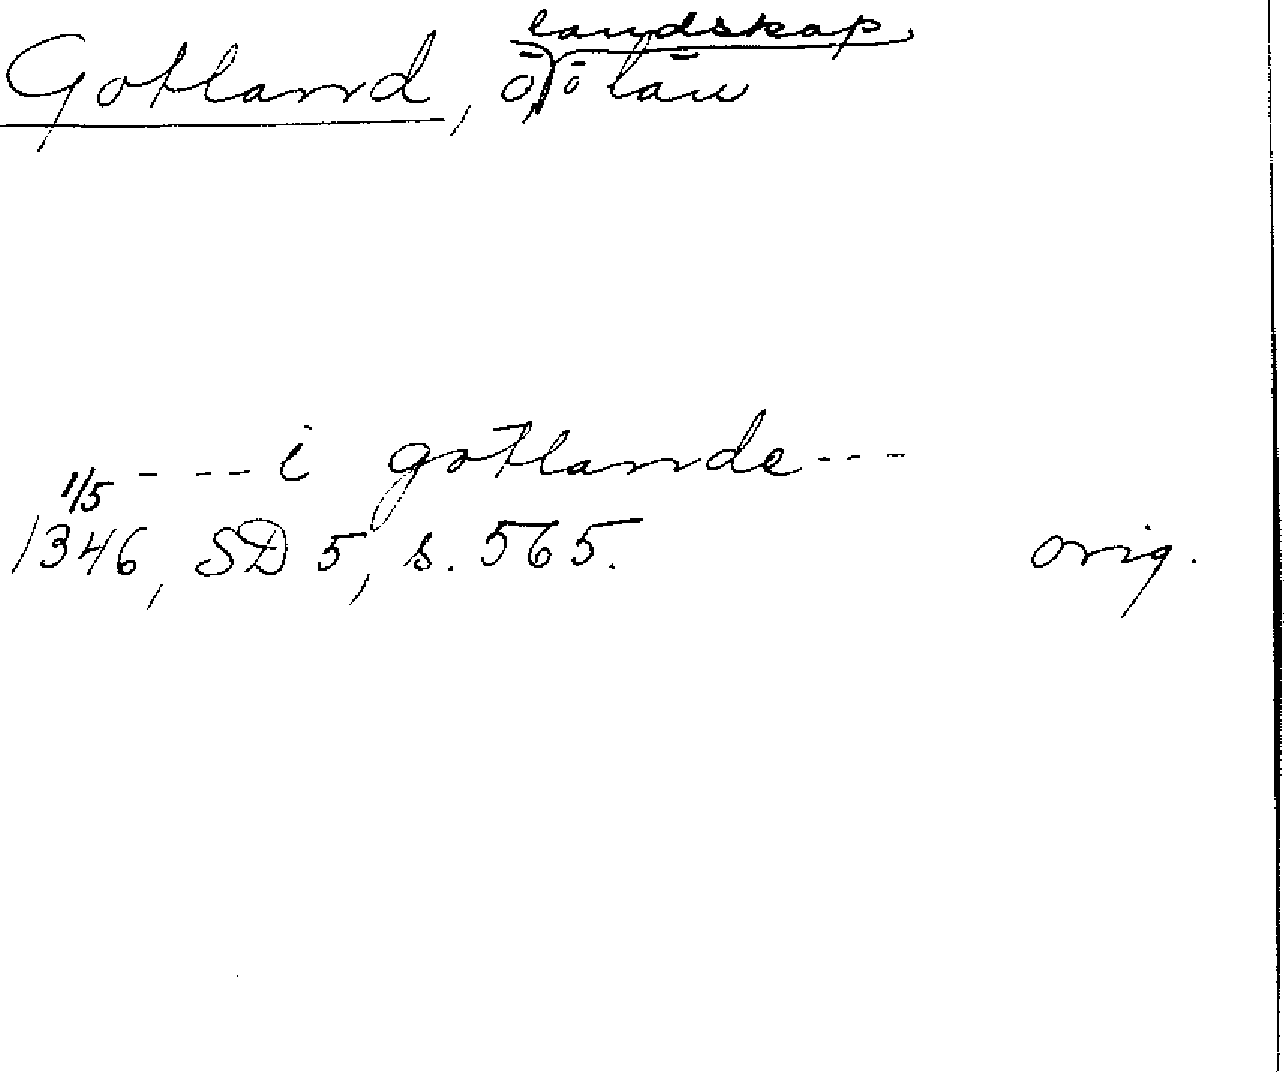 landskap
Gotland, ö, ö län
1/5 - - - - i gotlande - - -
1346, SD 5, s. 565. orig.